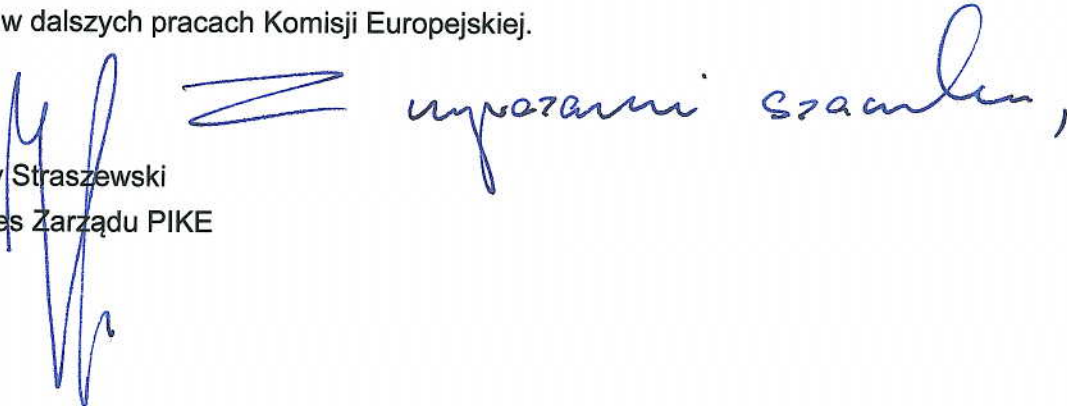 w dalszych pracach Komisji Europejskiej.
Z wyrazami szacunku,
y Straszewski
es Zarządu PIKE